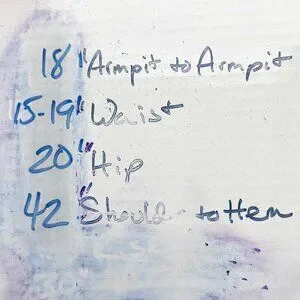 18" Armpit to Armpit
15-19" Waist
20" Hip
42" Should to Hem